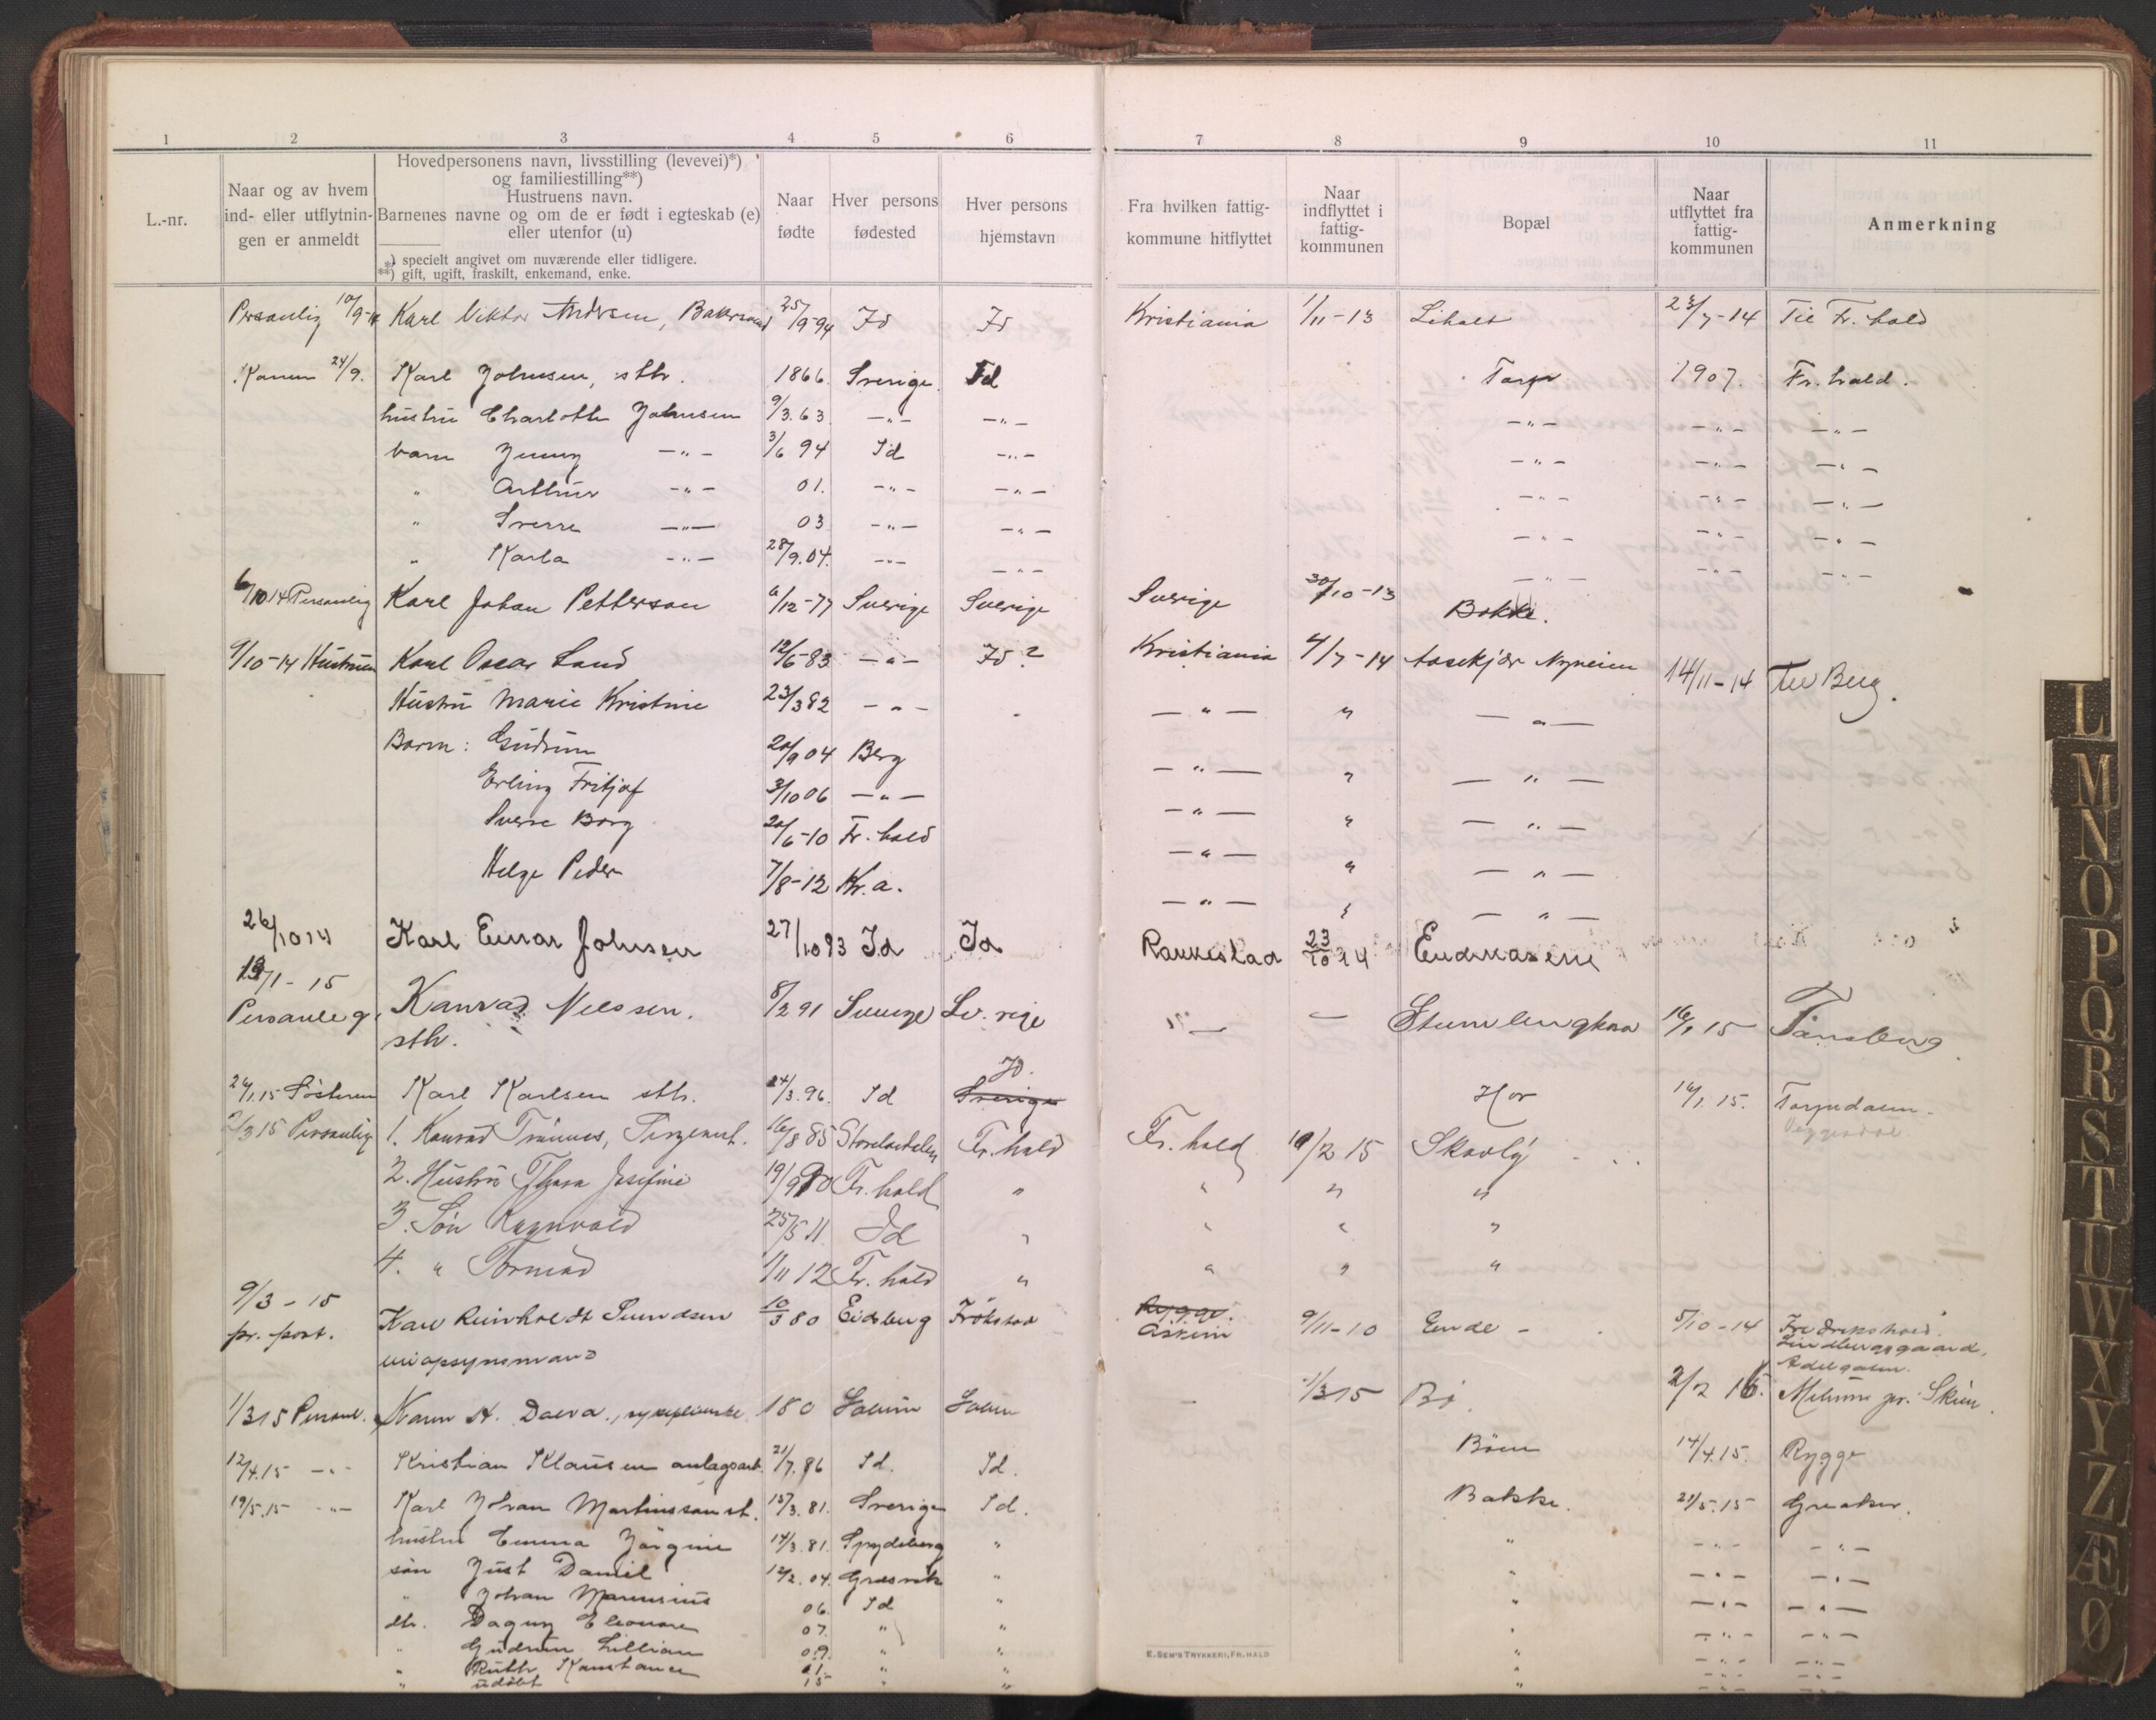 1 2 3 4 5 6 7 8 9 10 11
L.-nr.
Naar og av hvem
ind- eller utflytnin-
gen er anmeldt
Hovedpersonens navn, livsstilling (levevei)*)
og familiestilling**)
Hustruens navn.
Barnenes navne og om de er født i egteskab (e)
eller utenfor (u)
*) specielt angivet om nuværende eller tidligere.
**) gift, ugift, fraskilt, enkemand, enke.
Naar
fødte
Hver persons
fødested
Hver persons
hjemstavn
Fra hvilken fattig-
kommune hitflyttet
Naar
indflyttet i
fattig-
kommunen
Bopæl
Naar
utflyttet fra
fattig-
kommunen
Anmerkning
Personlig 10/9-14 Karl Viktor Andersen, 25/9-94 Id Id Kristiania 1/11-13 Liholt 23/7-14 Til Fr. hald
24/9. Karl Johnsen, sth. 1866. Sverige Id Torp 1907. Fr. hald.
hustru Charlotte Johnsen 9/3.63 -"- -"- -"- -"- -"-
barn Jenny -"- 3/6 94 Id -"- -"- -"- -"-
" Arthur -"- 01. -"- -"- -"- -"- -"-
" Sverre -"- 03 -"- -"- -"- -"- -"-
" Karla -"- 28/9.04. -"- -"- -"- -"- -"-
6/10 14 Personlig Karl Johan Petterson 6/12-77 Sverige Sverige Sverige 30/10-13 Bakke.
9/10-14 Hustruen Karl Oscar Lund 12/6-83 -"- Id? Kristiania 4/7-14 Aasekjær Nyveien 14/11-14 til Berg.
Hustru Marie Kristine 23/3 82 -"- -"- " -"-
Barn: Gudrun 20/9 04 Berg -"- " -"-
Erling Fritjof 3/10 06 -"- -"- " -"-
Sverre Borg 20/6-10 Fr. hald -"- " -"-
Helge Peder 7/8-12 Kr.a. -"- " -"-
26/10 14 Karl Einar Johnsen 27/10 93 Id Id Rakkestad 23/10 14
19/1-15
Personlig, Konrad Nilssen. 8/2 91 Sverige Sv. rige - - 16/1 15 Tønsberg.
sth.
Id.
26/1.15 Søsteren Karl Karlsen sth. 24/3.96. Id Sverige Hov 16/1.15. Torpedalen.
2/3 15 Personlig 1. Konrad Trønnes, Sergeant. 16/8 85 Storelvdalen Fr. hald Fr. hald 10/2 15 Skovly
2. Hustru Thora Josefine 19/9 90 Fr. hald " " " "
3. Søn Ragnvald 25/5 11 Id " " " "
4. " Tormod 1/11 12 Fr. hald " " " "
9/3-15 Karl Reinholdt Svendsen 10/3 80 Eidsberg Rygge. 9/11-10 Ende - 5/10-14 Fredrikshald.
pr. post. Askim
1/3 15 Personl. Karen A. 180 Solum Solum - 1/3 15 Bø. 2/2 16. Melum pr. Skien.
12/4.15 -"- Kristian Klausen anlagsarb. 21/7.86 Id. Id. Böen 14/4.15. Rygge
19/5.15 -"- Karl Johan Martinsson st. 15/3.81. Sverige Id. Bakke. 21/5.15 Greaker.
hustru Emma Jörgine 14/3.81. Spydeberg " " -"- -"-
søn Just Daniel 12/2.04. Græsvik " " -"- -"-
" Johan Marensius 06. Id " " -"- -"-
dtr. Dagny Eleonore 07. " " " -"- -"-
" Gudrun Lillian 09. " " " -"- -"-
" Ruth Konstance 11. " " " -"- -"-
" udöbt 15 " " " -"- -"-
E. SEM'S TRYKKERI, FR.HALD
L
M
N
O
P
Q
R
S
T
U
W
X
Y
Z
Æ
Ø